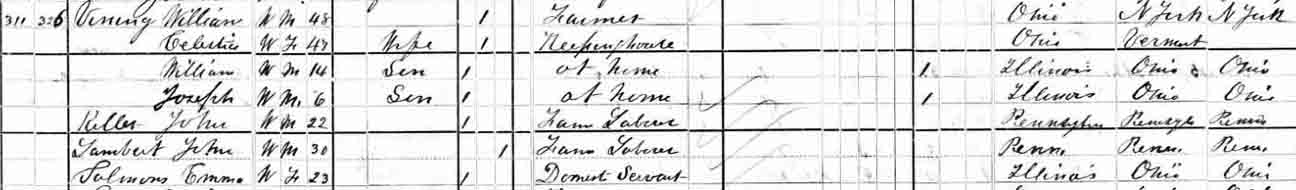 311 326 Vining William W M 48 1 Farmer Ohio N York N York
Celestia W F 47 Wife 1 Keeping house Ohio Vermont
William W M 14 Son 1 at home 1 Illinois Ohio Ohio
Joseph W M 6 Son 1 at home 1 Illinois Ohio Ohio
Keller John W M 22 1 Farm Laborer Penn
Lambert John W M 30 1 Farm Laborer Penn Penn Penn
Emma W F 23 1 Domest Servant Illinois Ohio Ohio